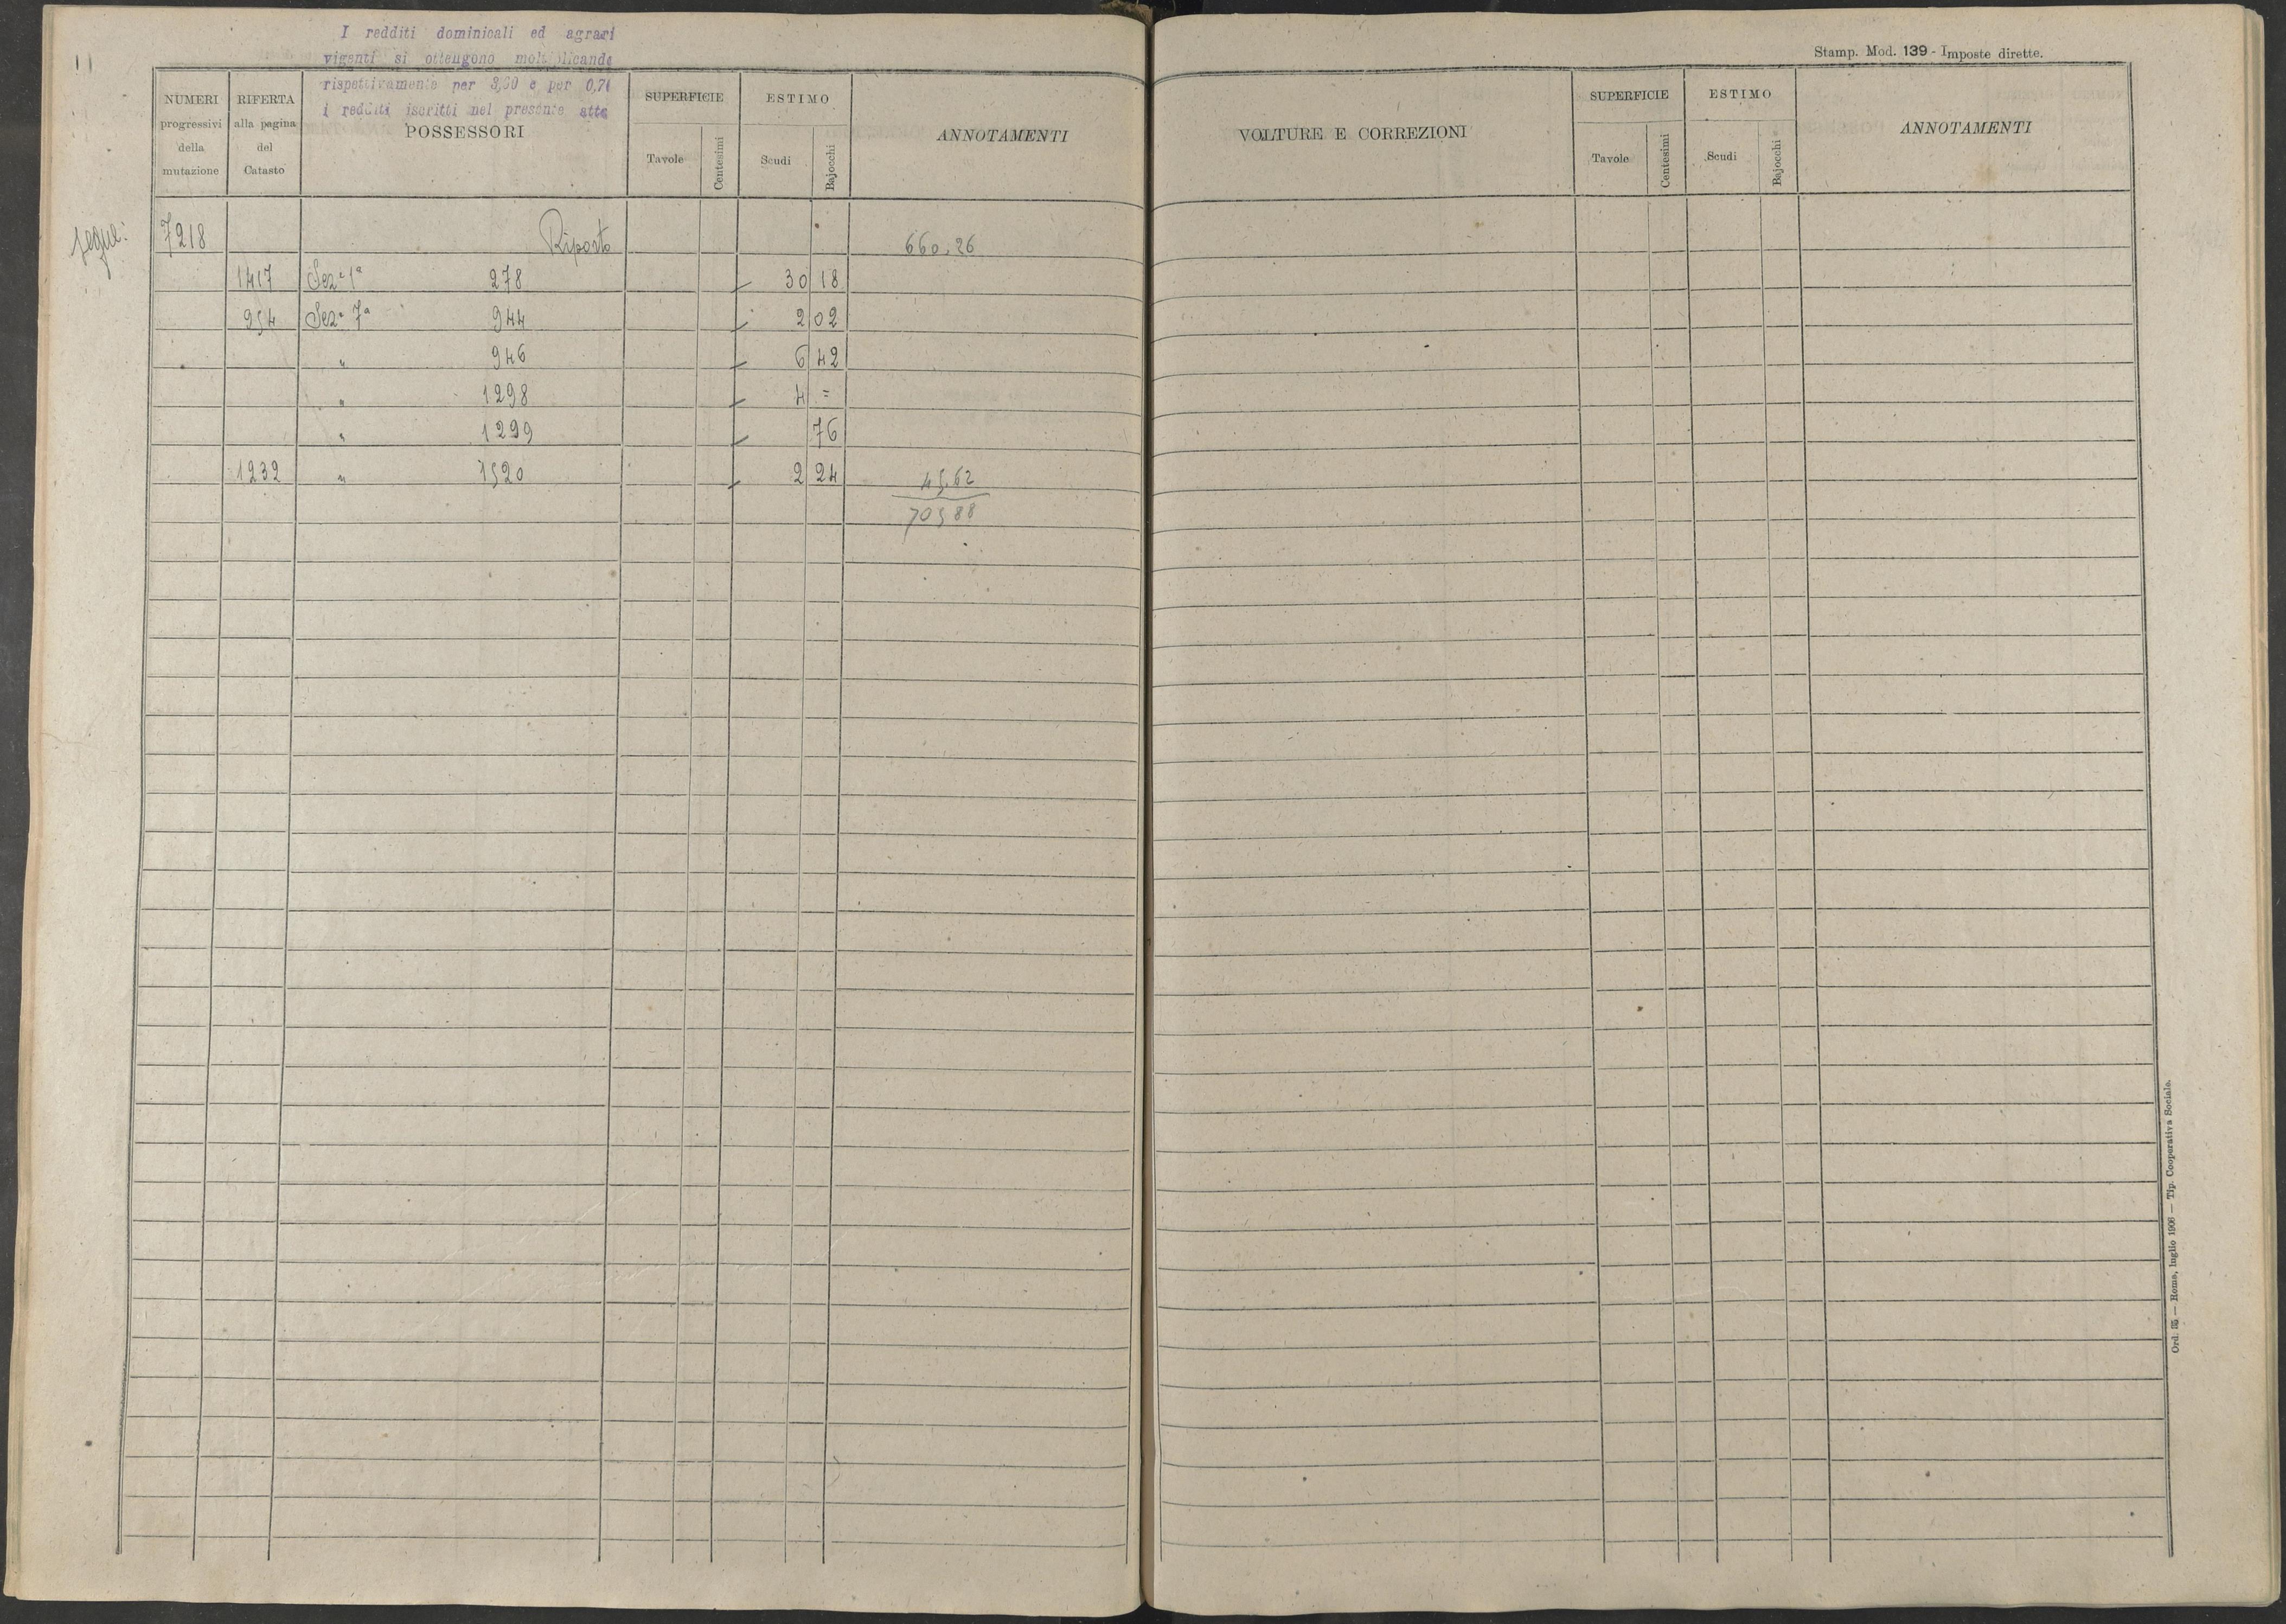 11
I redditi dominicali ed agrari
vigenti si ottengono moltiplicando
rispettivamente per 3,60 e per 0,71
i redditi iscritti nel presente atto
NUMERI progressivi della mutazione
RIFERTA alla pagina del Catasto
POSSESSORI
SUPERFICIE
Tavole
Centesimi
ESTIMO
Scudi
Bajocchi
ANNOTAMENTI
segue:
7218 Riporto 660,26
1417 Sez.e 1a 278 30 18
954 Sez.e 7a 944 2 02
" 946 6 42
" 1298 4 =
" 1299 76
1232 " 1520 2 24 45,62
705 88
Stamp. Mod. 139 - Imposte dirette.
VOLTURE E CORREZIONI
SUPERFICIE
Tavole
Centesimi
ESTIMO
Scudi
Bajocchi
ANNOTAMENTI
Ord. 35 — Roma, luglio 1906 — Tip. Cooperativa Sociale.